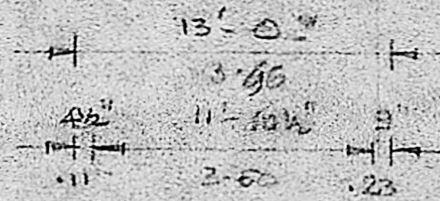 13'-0"
3.96
4½" 11'-10½" 9"
.11 .23